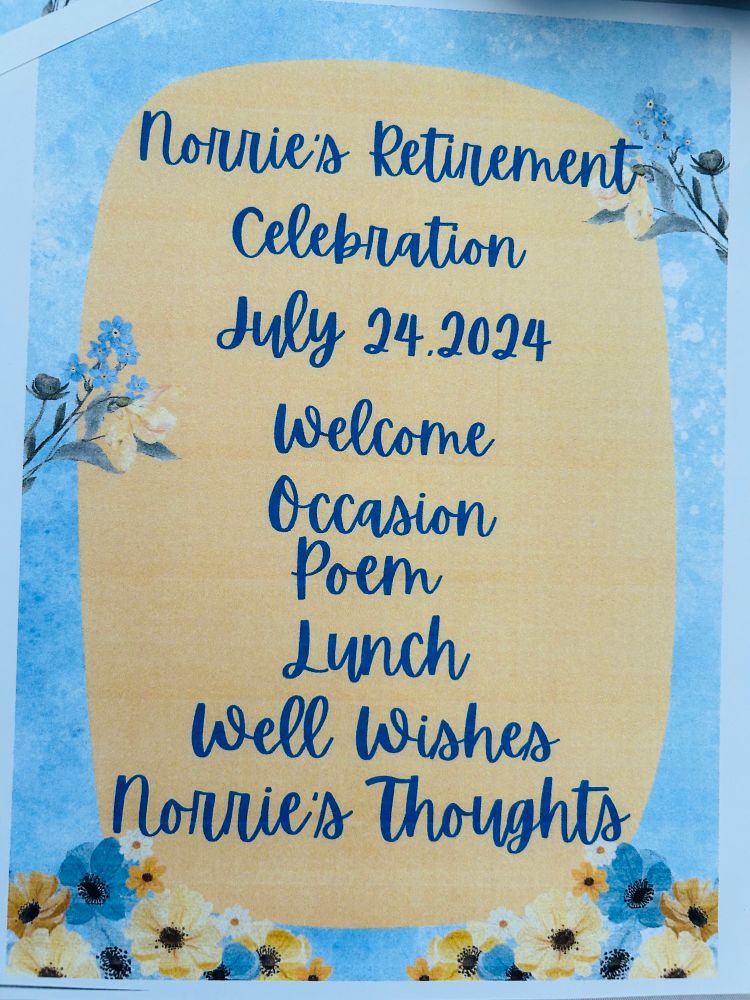 Norrie's Retirement
Celebration
July 24.2024
Welcome
Occasion
Poem
Lunch
Well Wishes
Norrie's Thoughts